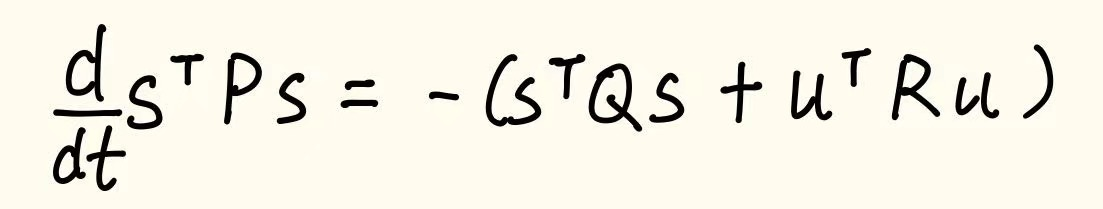 \frac{d}{dt} s^T P s = -(s^T Q s + u^T R u)